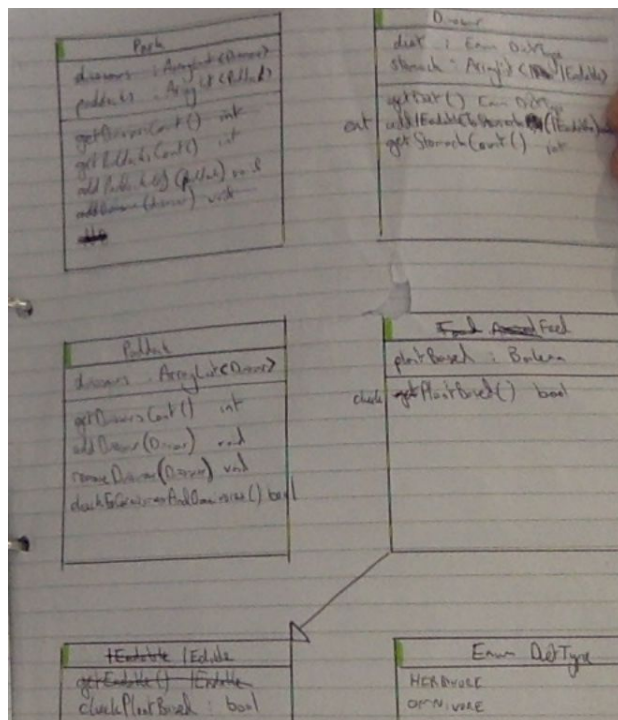 Park
dinosaurs : ArrayList<Dinosaur>
paddocks : ArrayList<Paddock>
getDinosaursCount() int
getPaddocksCount() int
(Paddock) void
addDinosaur(dinosaur) void
Dinosaur
diet : Enum DietType
stomach : ArrayList< IEdible>
getDiet() Enum DietType
eat
(IEdible)
getStomachCount() int
Paddock
dinosaurs : ArrayList<Dinosaur>
getDinosaursCount() int
addDinosaur(Dinosaur) void
removeDinosaur(Dinosaur) void
bool
Feed
plantBased : Boolean
check getPlantBased() bool
IEdible
checkPlantBased : bool
Enum DietType
HERBIVORE
OMNIVORE